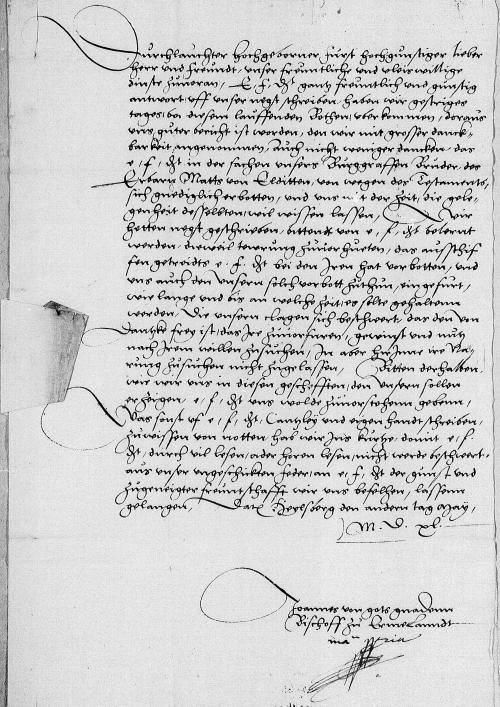 Durchlauchter Hochgeborner Fürst hochgunstiger lieber
Herr vnd Freundt, vnser freuntliche vnd vleis willige
dinste zuuoran, E f. Dt. gantz freuntlich vnd gunstig
antwort vff vnser negst schreiben, haben wir gestriges
tages, bei diesem lauffenden Bothen, vberkommen, doraus
vns guter bericht ist worden, den wir mit grosser danck-
barkeit angenommen, Auch nicht weniger dancken, das
e. f. Dt in der sachen vnsers Burggraffen Bruder, des
Erbarn Matts von Elditten, von wegen des Testaments,
sich gnediglich erbotten, vnd vns mit der Zeit, die gele-
genheit desselbten, wil wissen lassen, Wir
hetten negst geschrieben, bittende von e. f. Dt belernt
werden, dieweil tewrung zuuerhueten, das ausschif
fen getreidts e. f. Dt bei den Iren hat verbotten, vnd
vns auch den vnsern solch verbott zuthun, eingefurt,
wie lange vnd bis an welche Zeit, es solte gehaltenn
werden, Die vnsern clagen sich beschwert, das den von
Dantzke frey ist, das Ire zuuorfuren, gewinst vnd nutz
nach Irem willen zusuchen, In aber hirInne ire Na-
rung zusuchen nicht zugelassen, Bitten derhalben,
wie wir vns in diesen geschefften, den vnsern sollen
erzeigen, e. f. Dt vns wolde zuuorstehenn gebenn,
Was sonst vf e. f. Dt. Cantzley vnd eigen handt schreiben,
zuwissen von notten, hab wir Ins kurtze, domit e. f.
Dt. durch vil lesen, ader horen lesen, nicht werde beschwert,
aus vnser vngeschickten feder, an e. f. Dt der gunst vnd
zugeneigter freuntschafft wir vns befelhen, lassenn
gelangen, Dat. Heilsberg den andern tag May,
M. D. xl.
Joannes von gots gnadenn
Bischoff zu Ermelanndt
manu propria